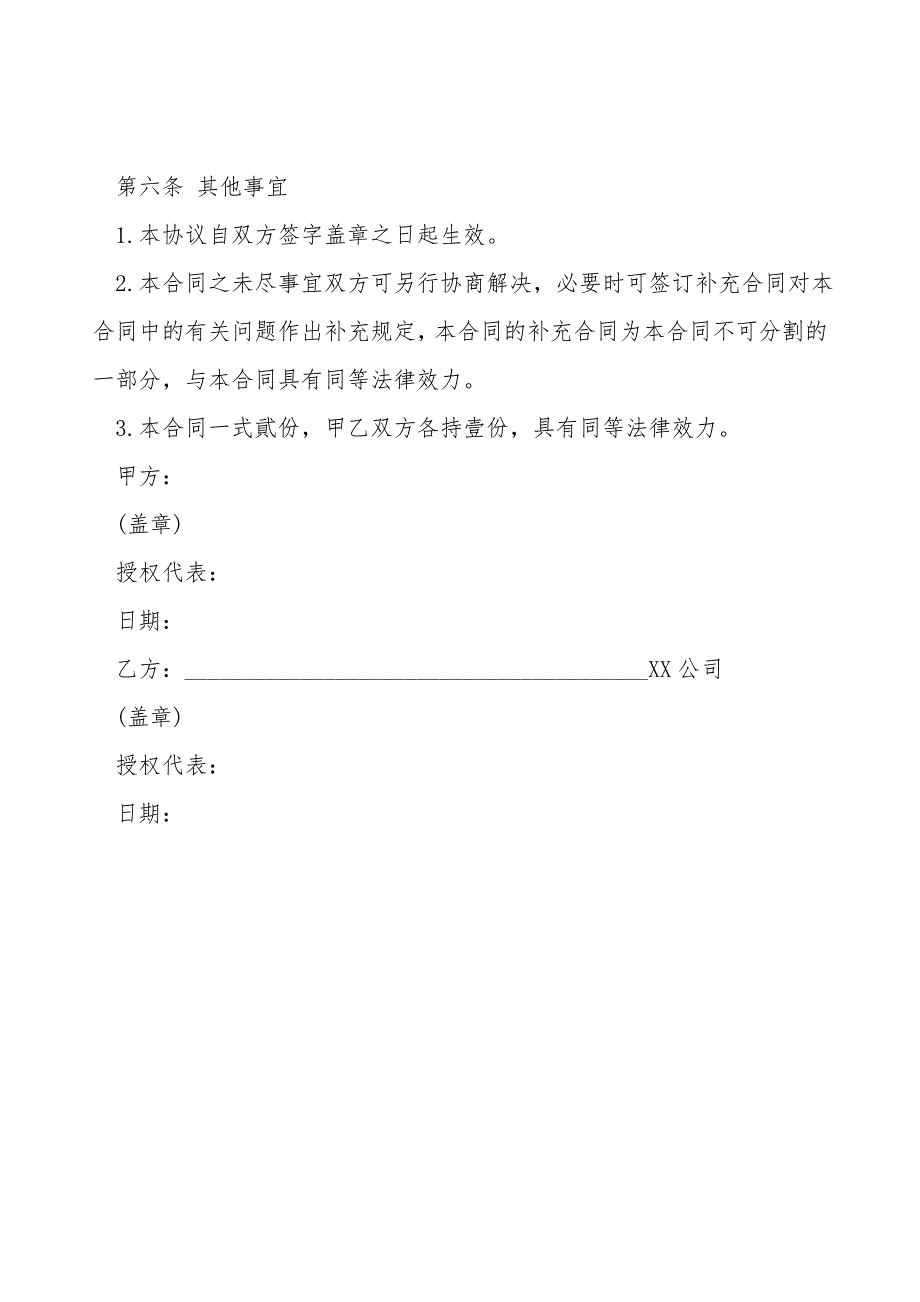 第六条 其他事宜
1.本协议自双方签字盖章之日起生效。
2.本合同之未尽事宜双方可另行协商解决，必要时可签订补充合同对本
合同中的有关问题作出补充规定，本合同的补充合同为本合同不可分割的
一部分，与本合同具有同等法律效力。
3.本合同一式貳份，甲乙双方各持壹份，具有同等法律效力。
甲方：
(盖章)
授权代表：
日期：
乙方：________________________________________XX 公司
(盖章)
授权代表：
日期：